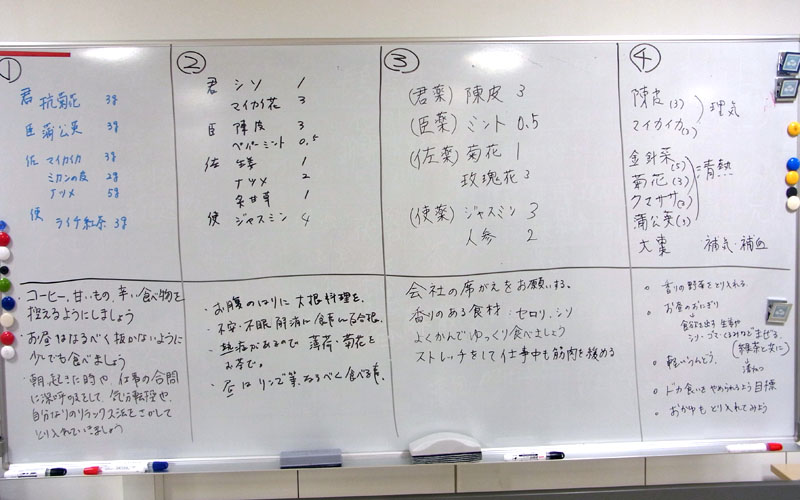 ①
君 杭菊花 3g
臣 蒲公英 3g
佐 マイカイカ 3g
ミカンの皮 2g
ナツメ 5g
使 ライチ紅茶 3g
コーヒー、甘いもの、辛い食べ物を
控えるようにしましょう
お昼はなるべく抜かないように
少しでも食べましょう
朝、起きた時や、仕事の合間
に深呼吸をして、気分転換や、
自分なりのリラックス法をさがして
とり入れていきましょう
②
君 シソ 1
マイカイ花 3
臣 陳皮 3
ペパーミント 0.5
佐 生姜 1
ナツメ 2
炙甘草 1
使 ジャスミン 4
・お腹のはりに大根料理を。
・不安・不眠解消に食事に百合根。
・熱症があるので 薄荷・菊花を
お茶で。
・昼はリンゴ等、なるべく食べる事。
③
(君薬) 陳皮 3
(臣薬) ミント 0.5
(佐薬) 菊花 1
玫瑰花 3
(使薬) ジャスミン 3
人参 2
会社の席がえをお願いする。
香りのある食材:セロリ、シソ
よくかんでゆっくり食べましょう
ストレッチをして仕事中も筋肉を緩める
④
陳皮(3)
マイカイカ(3)
理気
金針菜(5)
菊花(3)
クマササ(2)
蒲公英(3)
清熱
大棗 補気・補血
○ 香りの野菜をとり入れる
○ お昼のおにぎり
↓
食欲を出す 生姜や
シソ・ゴマ・くるみなどまぜる
(緑茶と共に)
↓
清熱
○ 軽いうんどう
○ ドカ食いをやめられるよう目標
○ おかゆもとり入れてみよう